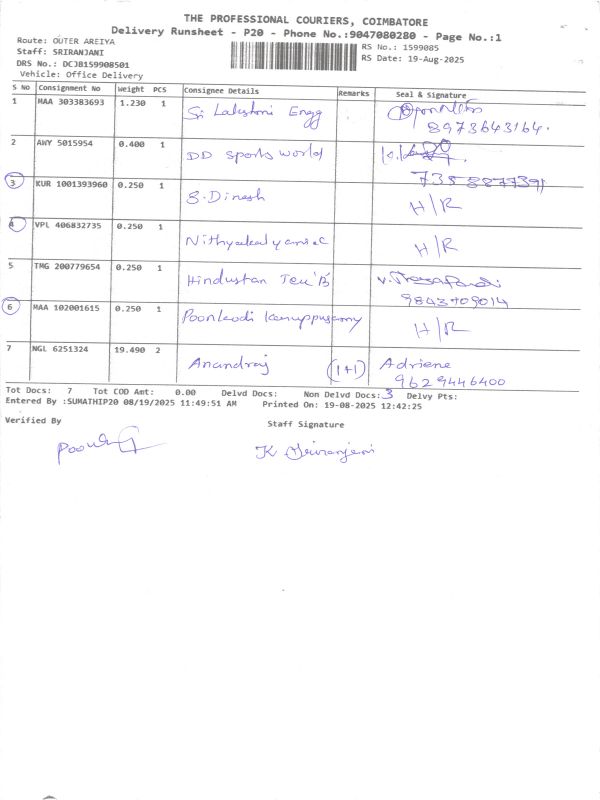 THE PROFESSIONAL COURIERS, COIMBATORE
Delivery Runsheet - P20 - Phone No.:9047080280 - Page No.:1
Route: OUTER AREIYA
Staff: SRIRANJANI
DRS No.: DCJB159908501
Vehicle: Office Delivery
RS No.: 1599085
RS Date: 19-Aug-2025
S No Consignment No Weight PCS Consignee Details Remarks Seal & Signature
1 MAA 303383693 1.230 1 Sri Lakshmi Engg
8973643164.
2 AWY 5015954 0.400 1 DD sports world
7358877391
3 KUR 1001393960 0.250 1 S.Dinesh H/R
4 VPL 406832735 0.250 1 H/R
5 TMG 200779654 0.250 1 Hindustan
9843409014
6 MAA 102001615 0.250 1 H/R
7 NGL 6251324 19.490 2 Anandraj (1+1) Adriene
9629446400
Tot Docs: 7 Tot COD Amt: 0.00 Delvd Docs: Non Delvd Docs: 3 Delvy Pts:
Entered By :SUMATHIP20 08/19/2025 11:49:51 AM Printed On: 19-08-2025 12:42:25
Verified By
Staff Signature
K Sriranjani